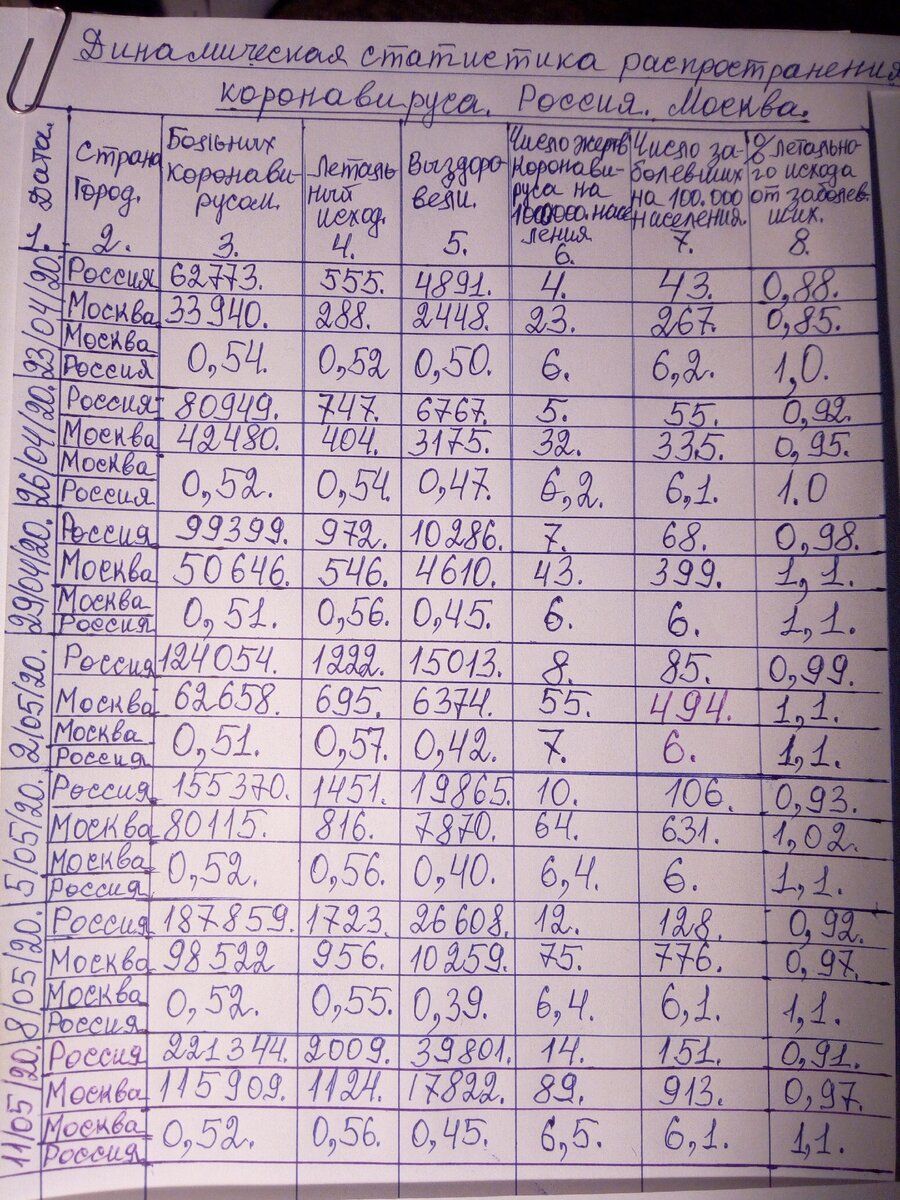 Динамическая статистика распространения
коронавируса. Россия. Москва.
1. Дата.
Страна
Город.
2.
Больных
коронави-
русом.
3.
Леталь-
ный
исход.
4.
Выздоро-
вели.
5.
Число жертв
коронави-
руса на
1000000. насе-
ления
6.
Число за-
болевших
на 100.000
населения.
7.
% летально-
го исхода
от заболев-
ших.
8.
23/04/20.
Россия 62773. 555. 4891. 4. 43. 0,88.
Москва 33940. 288. 2448. 23. 267. 0,85.
Москва
Россия 0,54. 0,52 0,50. 6. 6,2. 1,0.
26/04/20.
Россия 80949. 747. 6767. 5. 55. 0,92.
Москва 42480. 404. 3175. 32. 335. 0,95.
Москва
Россия 0,52. 0,54. 0,47. 6,2. 6,1. 1.0
29/04/20.
Россия 99399. 972. 10286. 7. 68. 0,98.
Москва 50646. 546. 4610. 43. 399. 1,1.
Москва
Россия 0,51. 0,56. 0,45. 6. 6. 1,1.
2/05/20.
Россия 124054. 1222. 15013. 8. 85. 0,99.
Москва 62658. 695. 6374. 55. 494. 1,1.
Москва
Россия 0,51. 0,57. 0,42. 7. 6. 1,1.
5/05/20.
Россия 155370. 1451. 19865. 10. 106. 0,93.
Москва 80115. 816. 7870. 64. 631. 1,02.
Москва
Россия 0,52. 0,56. 0,40. 6,4. 6. 1,1.
8/05/20.
Россия 187859. 1723. 26608. 12. 128. 0,92.
Москва 98522 956. 10259. 75. 776. 0,97.
Москва
Россия 0,52. 0,55. 0,39. 6,4. 6,1. 1,1.
11/05/20.
Россия 221344. 2009. 39801. 14. 151. 0,91.
Москва 115909. 1124. 17822. 89. 913. 0,97.
Москва
Россия. 0,52. 0,56. 0,45. 6,5. 6,1. 1,1.